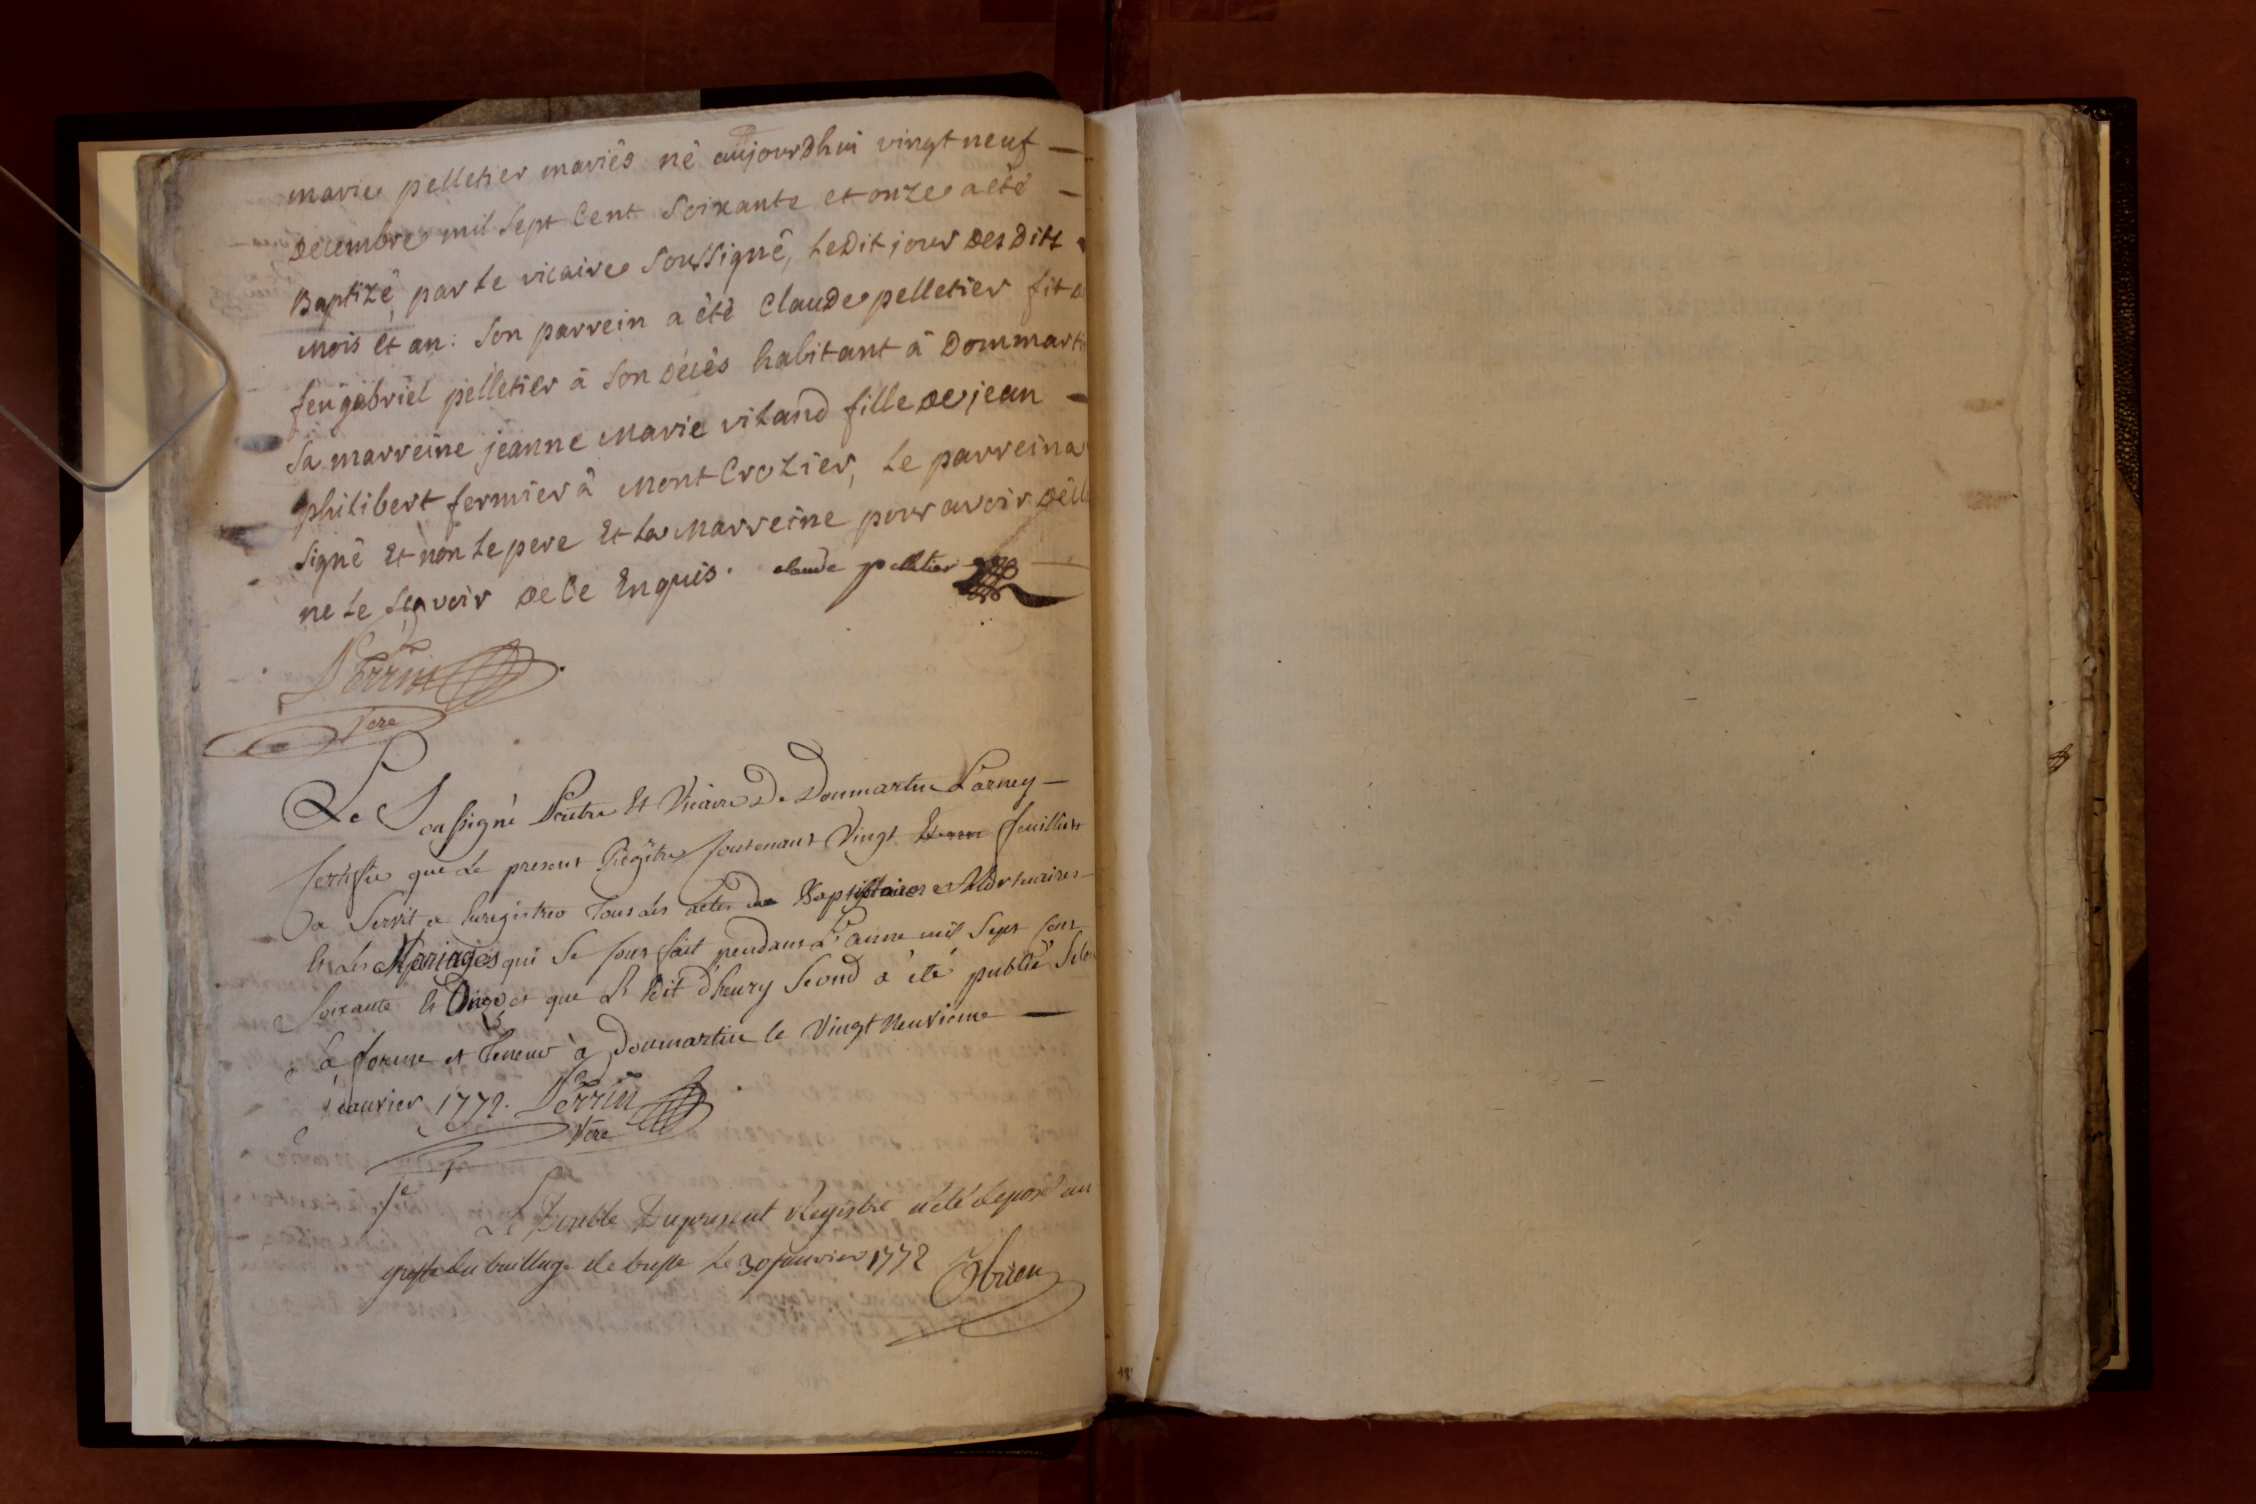 marie pelletier mariés né aujourdhui vingt neuf —
Decembre mil sept Cent soixante et onze a été —
Baptizé par le vicaire soussigné, ledit jour des dits
mois et an : son parrein a été Claude pelletier fil
feu gabriel pelletier à son décès habitant à Dommarti
sa marreine jeanne marie viland fille de jean —
philibert fermier à Mont Crozier, le parrein a
signé Et non le pere Et la marreine pour avoir
ne le sçavoir de Ce Enquis. claude pelletier
Perrin
vcre
Le Soussigné Prêtre Et Vicaire De Donmartin Larney —
Certifie que Le present Régître Contenant Vingt feuillets
a Servit a Enregistrer Tous Les actes Baptistaires Mortuaires
Et Les Mariages qui Se sont fait pendant L'anne mil Sept Cent
Soixante Et Onze et que L'Edit d'henry Second a été publié
Sa forme et Teneur à Donmartin le Vingt Neuvieme —
janvier 1772. Perrin
Vcre
Le Double Du present Registre a été déposé au
greffe du baillage de bresse Le 30 janvier 1772